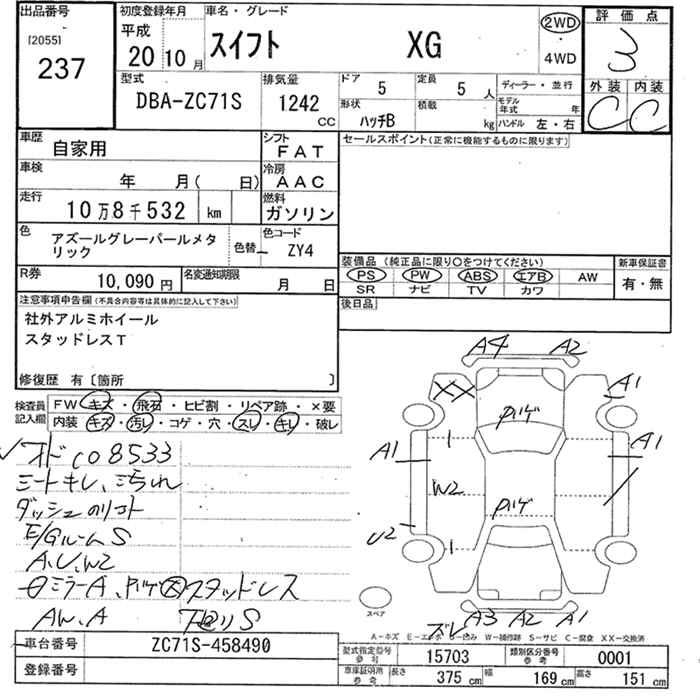 出品番号
[2055]
237
初度登録年月
平成
20 10 月
車名・グレード
スイフト XG
2WD
4WD
評価点
3
外装 内装
C C
型式
DBA-ZC71S
排気量
1242
CC
ドア
5
定員
5 人
形状
ハッチB
積載
kg
ディーラー・並行
モデル年式 年
ハンドル 左・右
車歴
自家用
シフト
FAT
車検
年 月( 日)
冷房
AAC
走行
10万8千532 km
燃料
ガソリン
色
アズールグレーパールメタ
リック
色替
色コード
ZY4
R券
10,090 円
名変通知期限
月 日
セールスポイント(正常に機能するものに限ります)
装備品 (純正品に限り〇をつけてください)
PS PW ABS エアB AW
SR ナビ TV カワ
新車保証書
有・無
後日品
注意事項申告欄(不具合内容等は具体的に記入して下さい)
社外アルミホイール
スタッドレスT
修復歴 有〔箇所 〕
検査員
記入欄
FW キズ・飛石・ヒビ割・リペア跡・×要
内装 キズ・汚レ・コゲ・穴・スレ・キレ・破レ
オドco8533
シートキレ、こすれ
ダッシュ
E/GルームS
A.U.W2
ミラーA、ハゲ 大 スタッドレス
AW.A 下回りS
A4 A2
XX
A1
ハゲ
A1
A1
W2
ハゲ
U2
スペア
ズレ A3 A2 A1
A-キズ E-エクボ U-凹み W-補修跡 S-サビ C-腐食 XX-交換済
車台番号
ZC71S-458490
登録番号
型式指定番号
参考
15703
類別区分番号
参考
0001
車庫証明用
参考
長さ 375 cm 幅 169 cm 高さ 151 cm